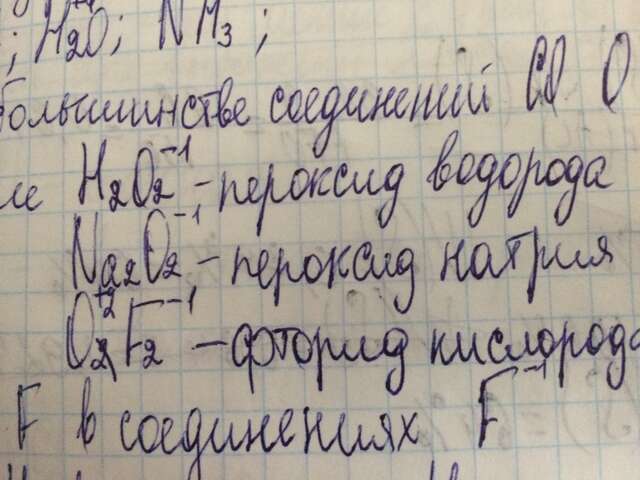 H₂O; NH₃;
большинстве соединений СО О
H₂O₂⁻¹ - пероксид водорода
Na₂O₂⁻¹ - пероксид натрия
O₂⁺²F₂⁻¹ - фторид кислорода
F в соединениях F⁻¹